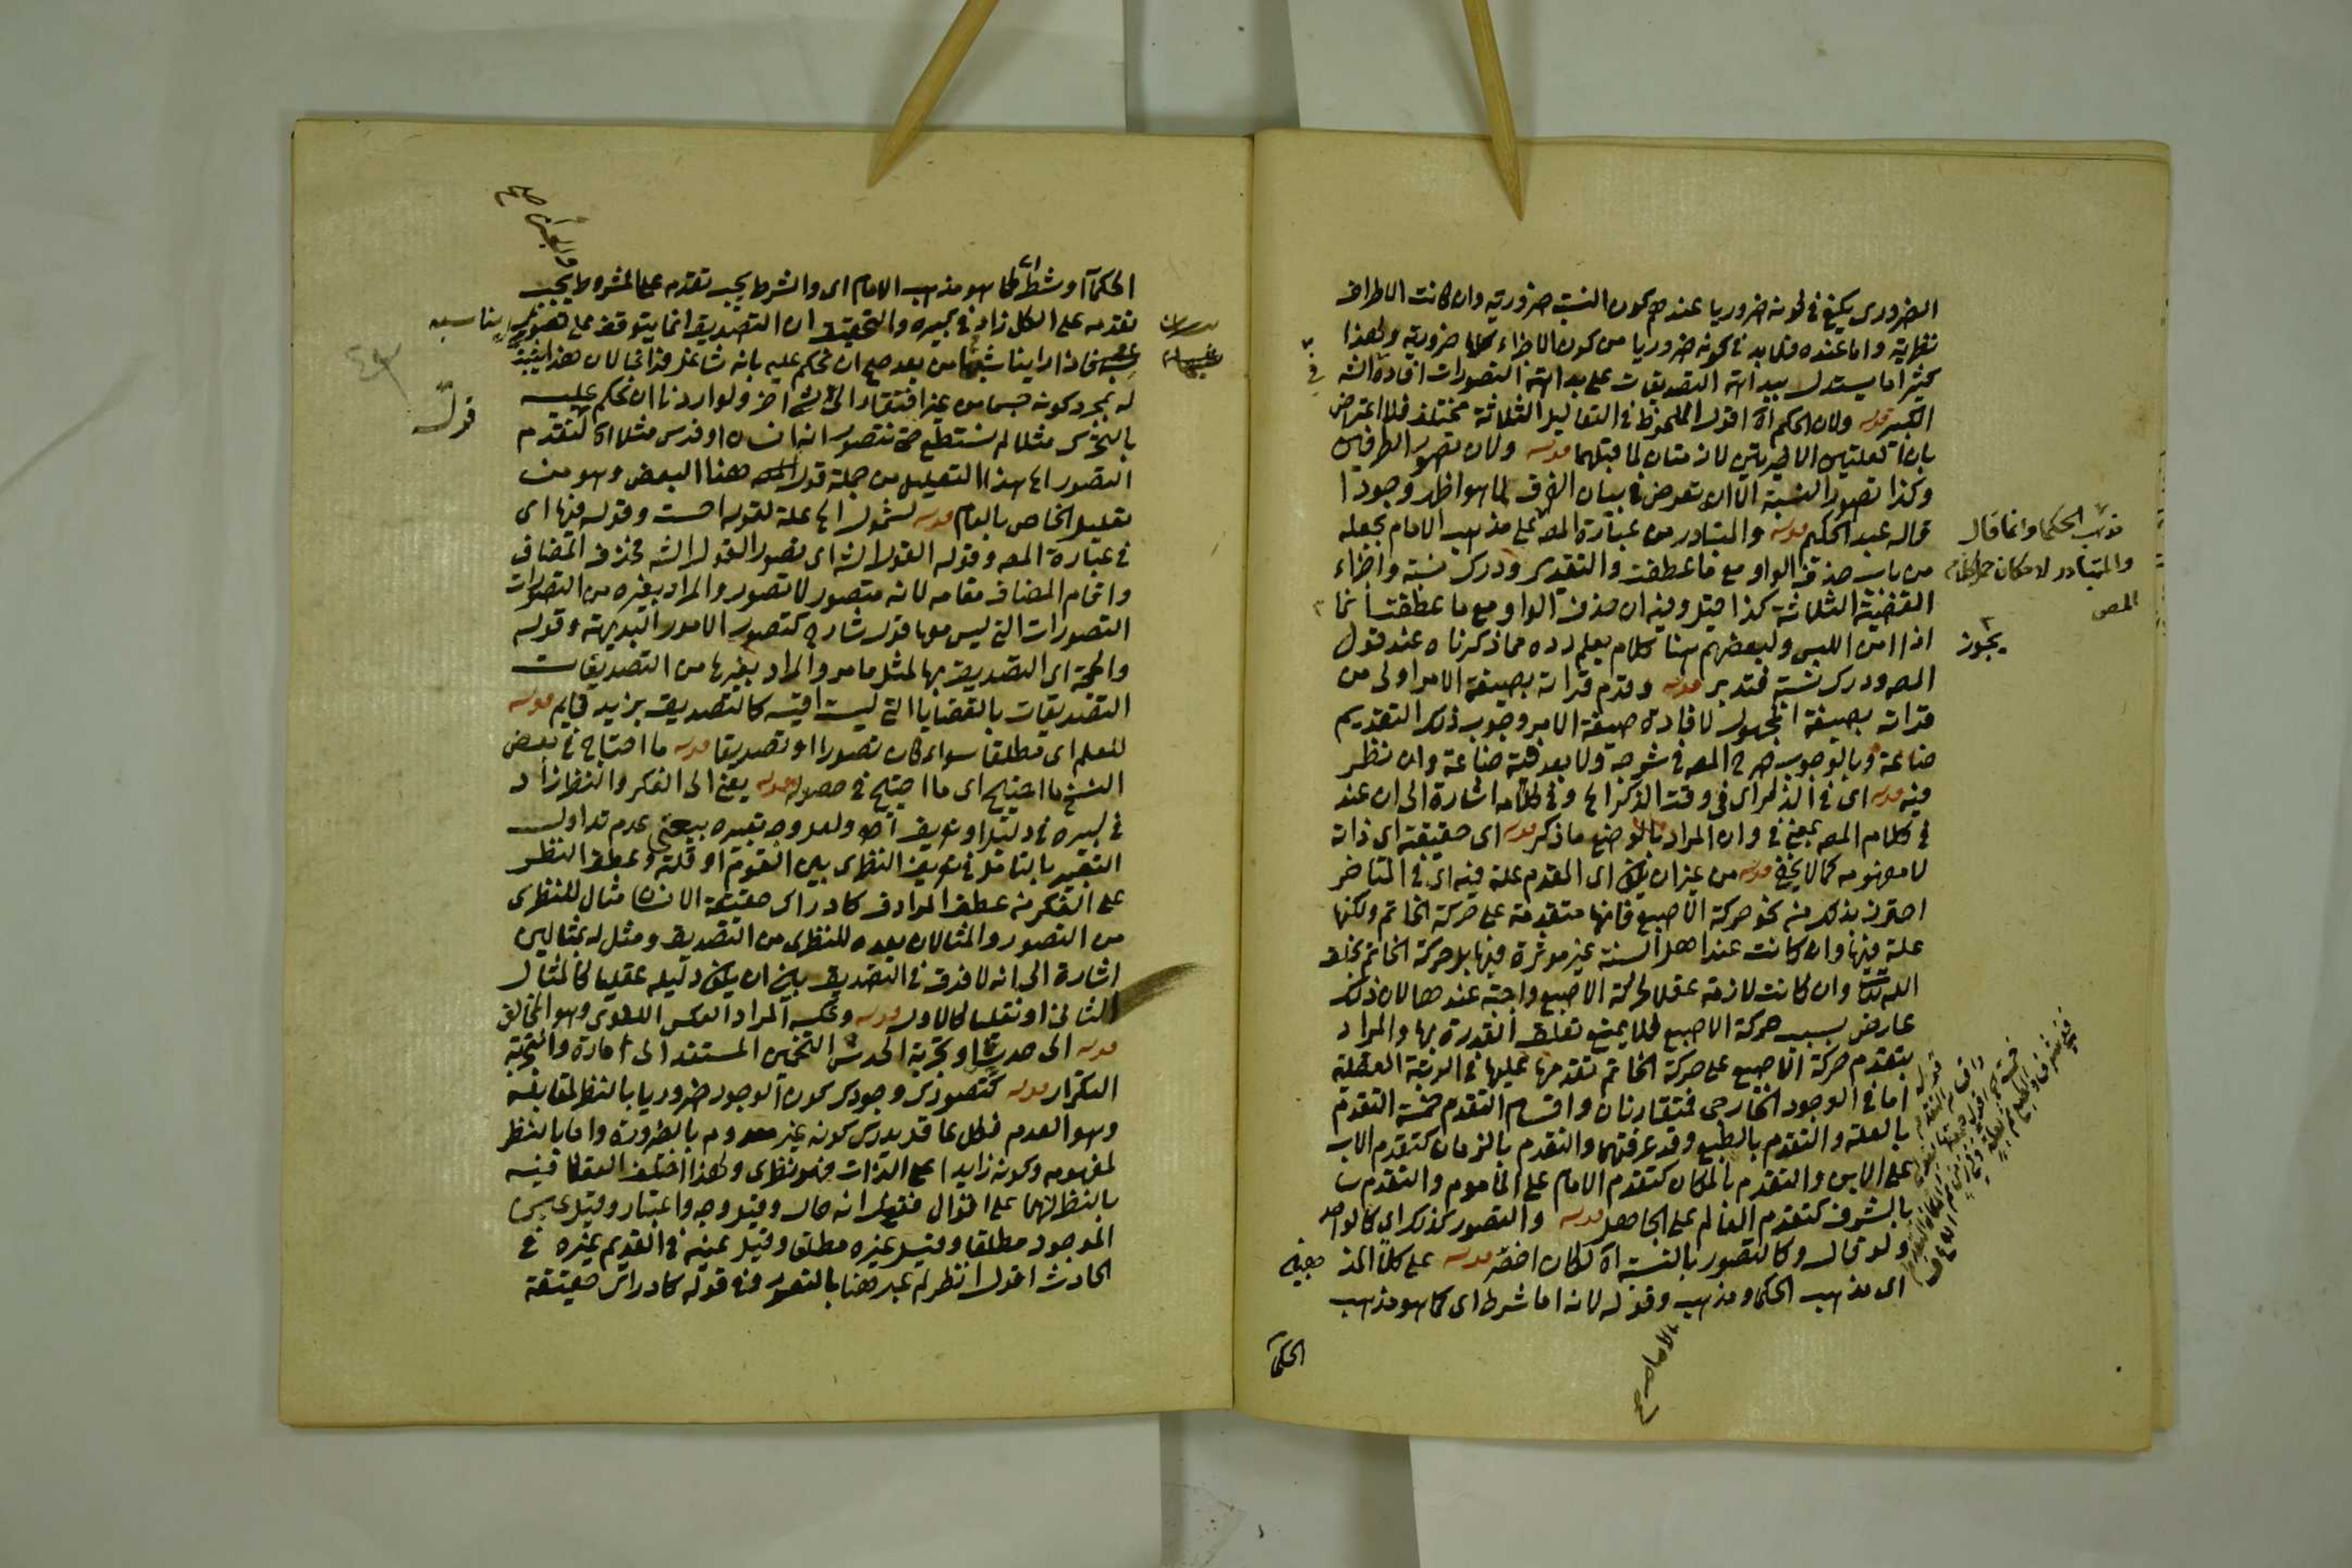 الضرورى يكفى فى كونه ضروريا عندهم كون النسبة ضرورية وان كانت الاطراف
نظرية واما عنده فلا بد فى كونه ضروريا من كون الاجزاء كلها ضرورية ولهذا
كثيرا ما يستدل ببداهة التصديقات على بداهة التصورات افاده الشه فى
الكبير قوله ولان الحكم اه اقول الملحوظ فى التعاليل الثلاثة مختلف فلا اعتراض
بان العلتين الاخيرتين لازمتان لما قبلهما قوله ولان تصور الطرفين
وكذا تصور النسبة الا ان تعرض فى بيان الفرق لما هو اظهر وجودا
قاله عبد الحكيم قوله والمتبادر من عبارة المص على مذهب الامام بجعله
من باب حذف الواو مع ما عطفت والتقدير ودرك نسبة واجزاء
القضية الثلاثة كذا قيل وفيه ان حذف الواو مع ما عطفت انما
اذا امن اللبس ولبعضهم هنا كلام يعلم رده مما ذكرناه عند قول
المص ودرك نسبة فتدبر قوله وقدم قراته بصيغة الامر اولى من
قراته بصيغة المجهول لافادة صيغة الامر وجوب ذلك التقديم
صناعة وبالوجوب صرح المص فى شرحه ولا بعد فيه صناعة وان نظر
فيه قوله اى فى الذكر اى فى وقت الذكر الخ وفى كلامه اشارة الى ان عند
فى كلام المص بمعنى فى وان المراد بالوضع ما ذكر قوله اى حقيقته اى ذاته
لا مفهومه كما لا يخفى قوله من غير ان يكون اى المقدم علة فيه اى فى المتاخر
احترز بذلك من نحو حركة الاصبع فانها متقدمة على حركة الخاتم ولكنها
علة فيها وان كانت عند اهل السنة غير موثرة فيها بل حركة الخاتم بخلق
الله تعالى وان كانت لازمة عقلا لحركة الاصبع واجبة عندها لان ذلك
عارض بسبب حركة الاصبع فلا يمنع تعلق القدرة بها والمراد
بتقدم حركة الاصبع على حركة الخاتم تقدمها عليها فى الرتبة العقلية
اما فى الوجود الخارجى فمتقارنان واقسام التقدم خمسة التقدم
بالعلة والتقدم بالطبع وقد عرفتهما والتقدم بالزمان كتقدم الاب
على الابن والتقدم بالمكان كتقدم الامام على الماموم والتقدم
بالشرف كتقدم العالم على الجاهل قوله والتصور كذلك اى كالواحد
ولو قال وكالتصور بالنسبة اه لكان اخصر قوله على كلا المذ
اى مذهب الحكما ومذهب وقوله لانه اما شرط اى كما هو مذهب
الامام
مذهب الحكما وانما قال
والمتبادر لامكان حمل كلام
المص
يجوز
الحكمآ
الحكمآ او شطر كما هو مذهب الامام اى والشرط يجب تقدمه على المشروط يجب
تقدمه على الكل زاد فى كبيره والتحقيق ان التصديق انما يتوقف على تصور يناسبه
فاذا راينا شبحا من بعد صح ان نحكم عليه بانه شاغل فراغا لان هذا يثبت
له بمجرد كونه جسما من غير افتقار الى شى اخر ولو اردنا ان نحكم عليه
بالتحرك مثلا لم نستطع حتى نتصور انه انسان او فرس مثلا اه كتقدم
التصور الخ هذا التعليل من جملة قول هذا البعض وهو من
تعليل الخاص بالعام قوله لشمول الخ علة لقوله احسن وقوله فيها اى
فى عبارة المص وقوله القول الشه اى تصور القول الشه فحذف المضاف
واقام المضاف مقامه لانه متصور لا تصور والمراد بغيره من التصورات
التصورات التى ليس معها قول شارح كتصور الامور البديهية وقوله
والحجة اى التصديق بها لمثل ما مر والمراد بغيرها من التصديقات
التصديقات بالقضايا التى ليست اقيسة كالتصديق بزيد قايم قوله
للعلم اى مطلقا سواء كان تصورا او تصديقا قوله ما احتاج فى بعض
النسخ ما احتيج اى ما احتيج فى حصوله قوله يعنى الى الفكر والنظر زاد
فى كبيره فى دليل او تعريف اه ولعل وجه تعبيره بيعنى عدم تداول
التعبير بالتامل فى تعريف النظرى بين القوم او قلته وعطف النظر
على الفكر من عطف المرادف كادراك حقيقة الانسان مثال للنظرى
من التصور والمثالان بعده للنظرى من التصديق ومثل له بمثالين
اشارة الى انه لا فرق فى التصديق بين ان يكون دليله عقليا كالمثال
الثانى او نقليا كالاول قوله وعكسه المراد العكس اللغوى وهو المخالف
قوله الى حدس او تجربة الحدس التخمين المستند الى امارة والتجربة
التكرار قوله كتصورك وجودك كون الوجود ضروريا بالنظر لمقابله
وهو العدم فكل عاقل يدرك كونه غير معدوم بالضرورة واما بالنظر
لمفهومه وكونه زايدا على الذات فهو نظرى ولهذا اختلف العقلا فيه
بالنظر لهما على اقوال فقيل انه حال وقيل وجه واعتبار وقيل عين
الموجود مطلقا وقيل غيره مطلقا وقيل عينه فى القديم غيره فى
الحادث اقول انظر لم عبر هنا بالتصور وفى قوله كادراك حقيقة
قول